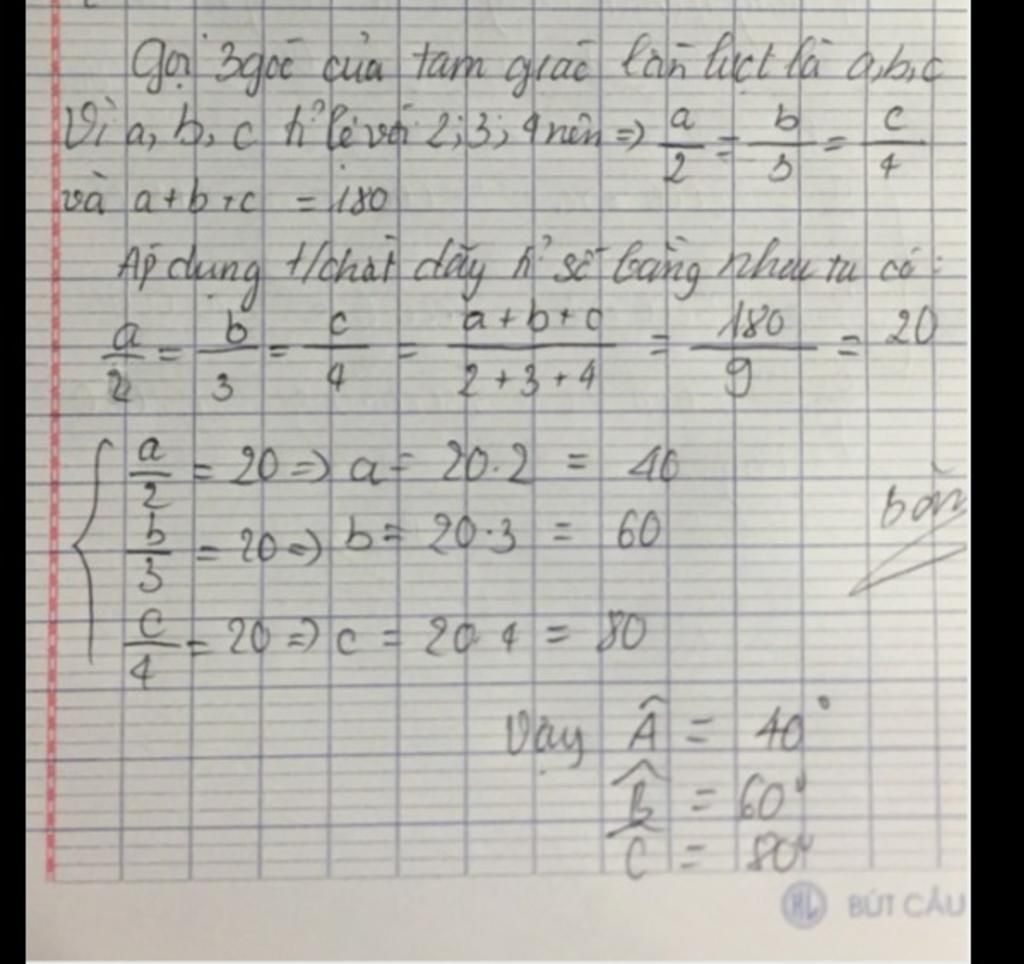 Gọi 3 góc của tam giác lần lượt là a,b,c
Vì a, b, c tỉ lệ với 2; 3; 4 nên => a/2 = b/3 = c/4
và a+b+c = 180
Áp dụng t/chất dãy tỉ số bằng nhau ta có:
a/2 = b/3 = c/4 = a+b+c/2+3+4 = 180/9 = 20
a/2 = 20 => a = 20.2 = 40
b/3 = 20 => b = 20.3 = 60
c/4 = 20 => c = 20.4 = 80
Vậy Â = 40°
B̂ = 60°
Ĉ = 80°
BÚT CẦU